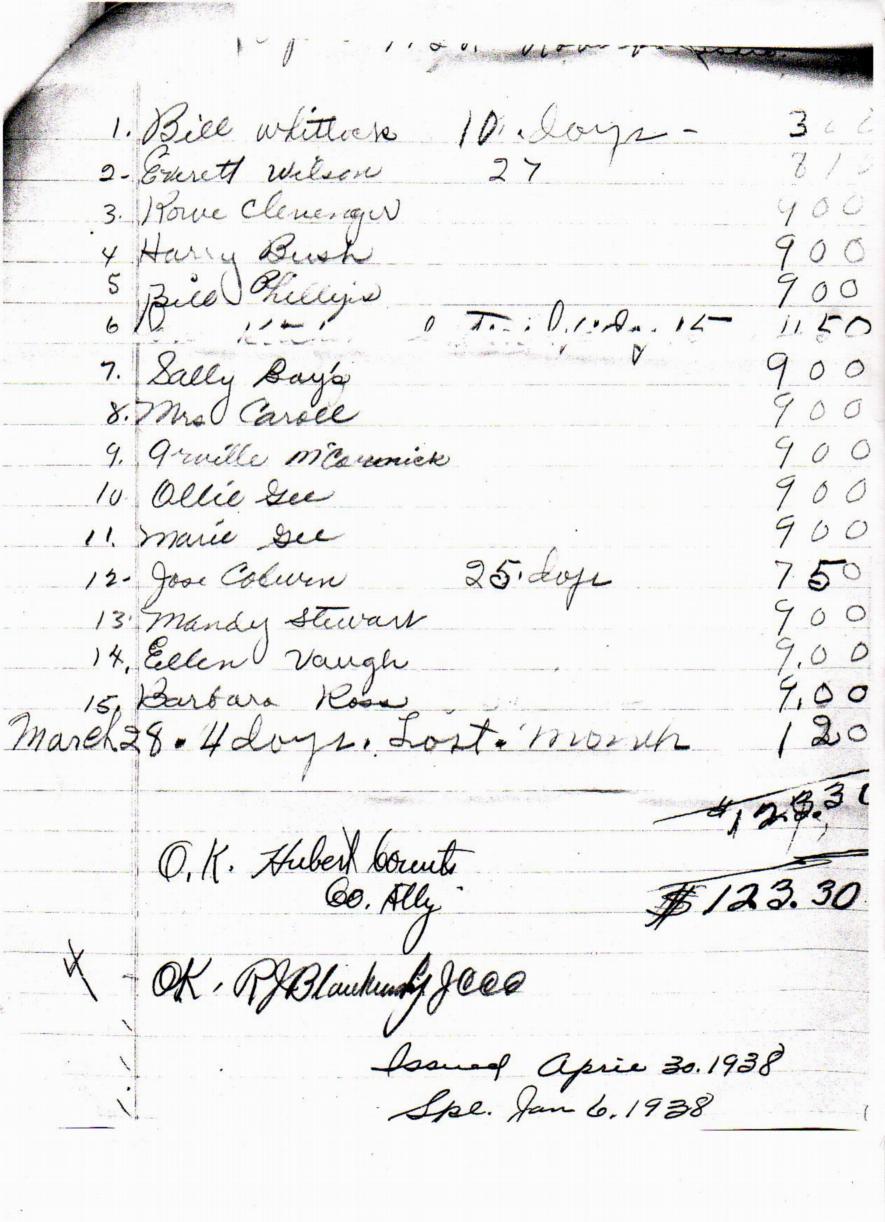 1. Bill Whitlock 10 days - 3
2- Everett Wilson 27 8 10
3. Rowe Clevenger 9 00
4 Harry Bush 9 00
5 Bill Phillips 9 00
6 15 11 50
7. Sally Bays 9 00
8. Mrs Caroll 9 00
9. Arville McCormick 9 00
10 Ollie Gee 9 00
11. Marie Gee 9 00
12- Jose Coburn 25 days 7 50
13. Mandy Stewart 9 00
14. Ellen Vaugh 9.00
15. Barbara Ross 9.00
March 28. 4 days. Last. Month 1 20
O.K. Hubert Counts
Co. Atty
$123.30
OK. RJ
Issued April 30. 1938
Spl. Jan 6. 1938